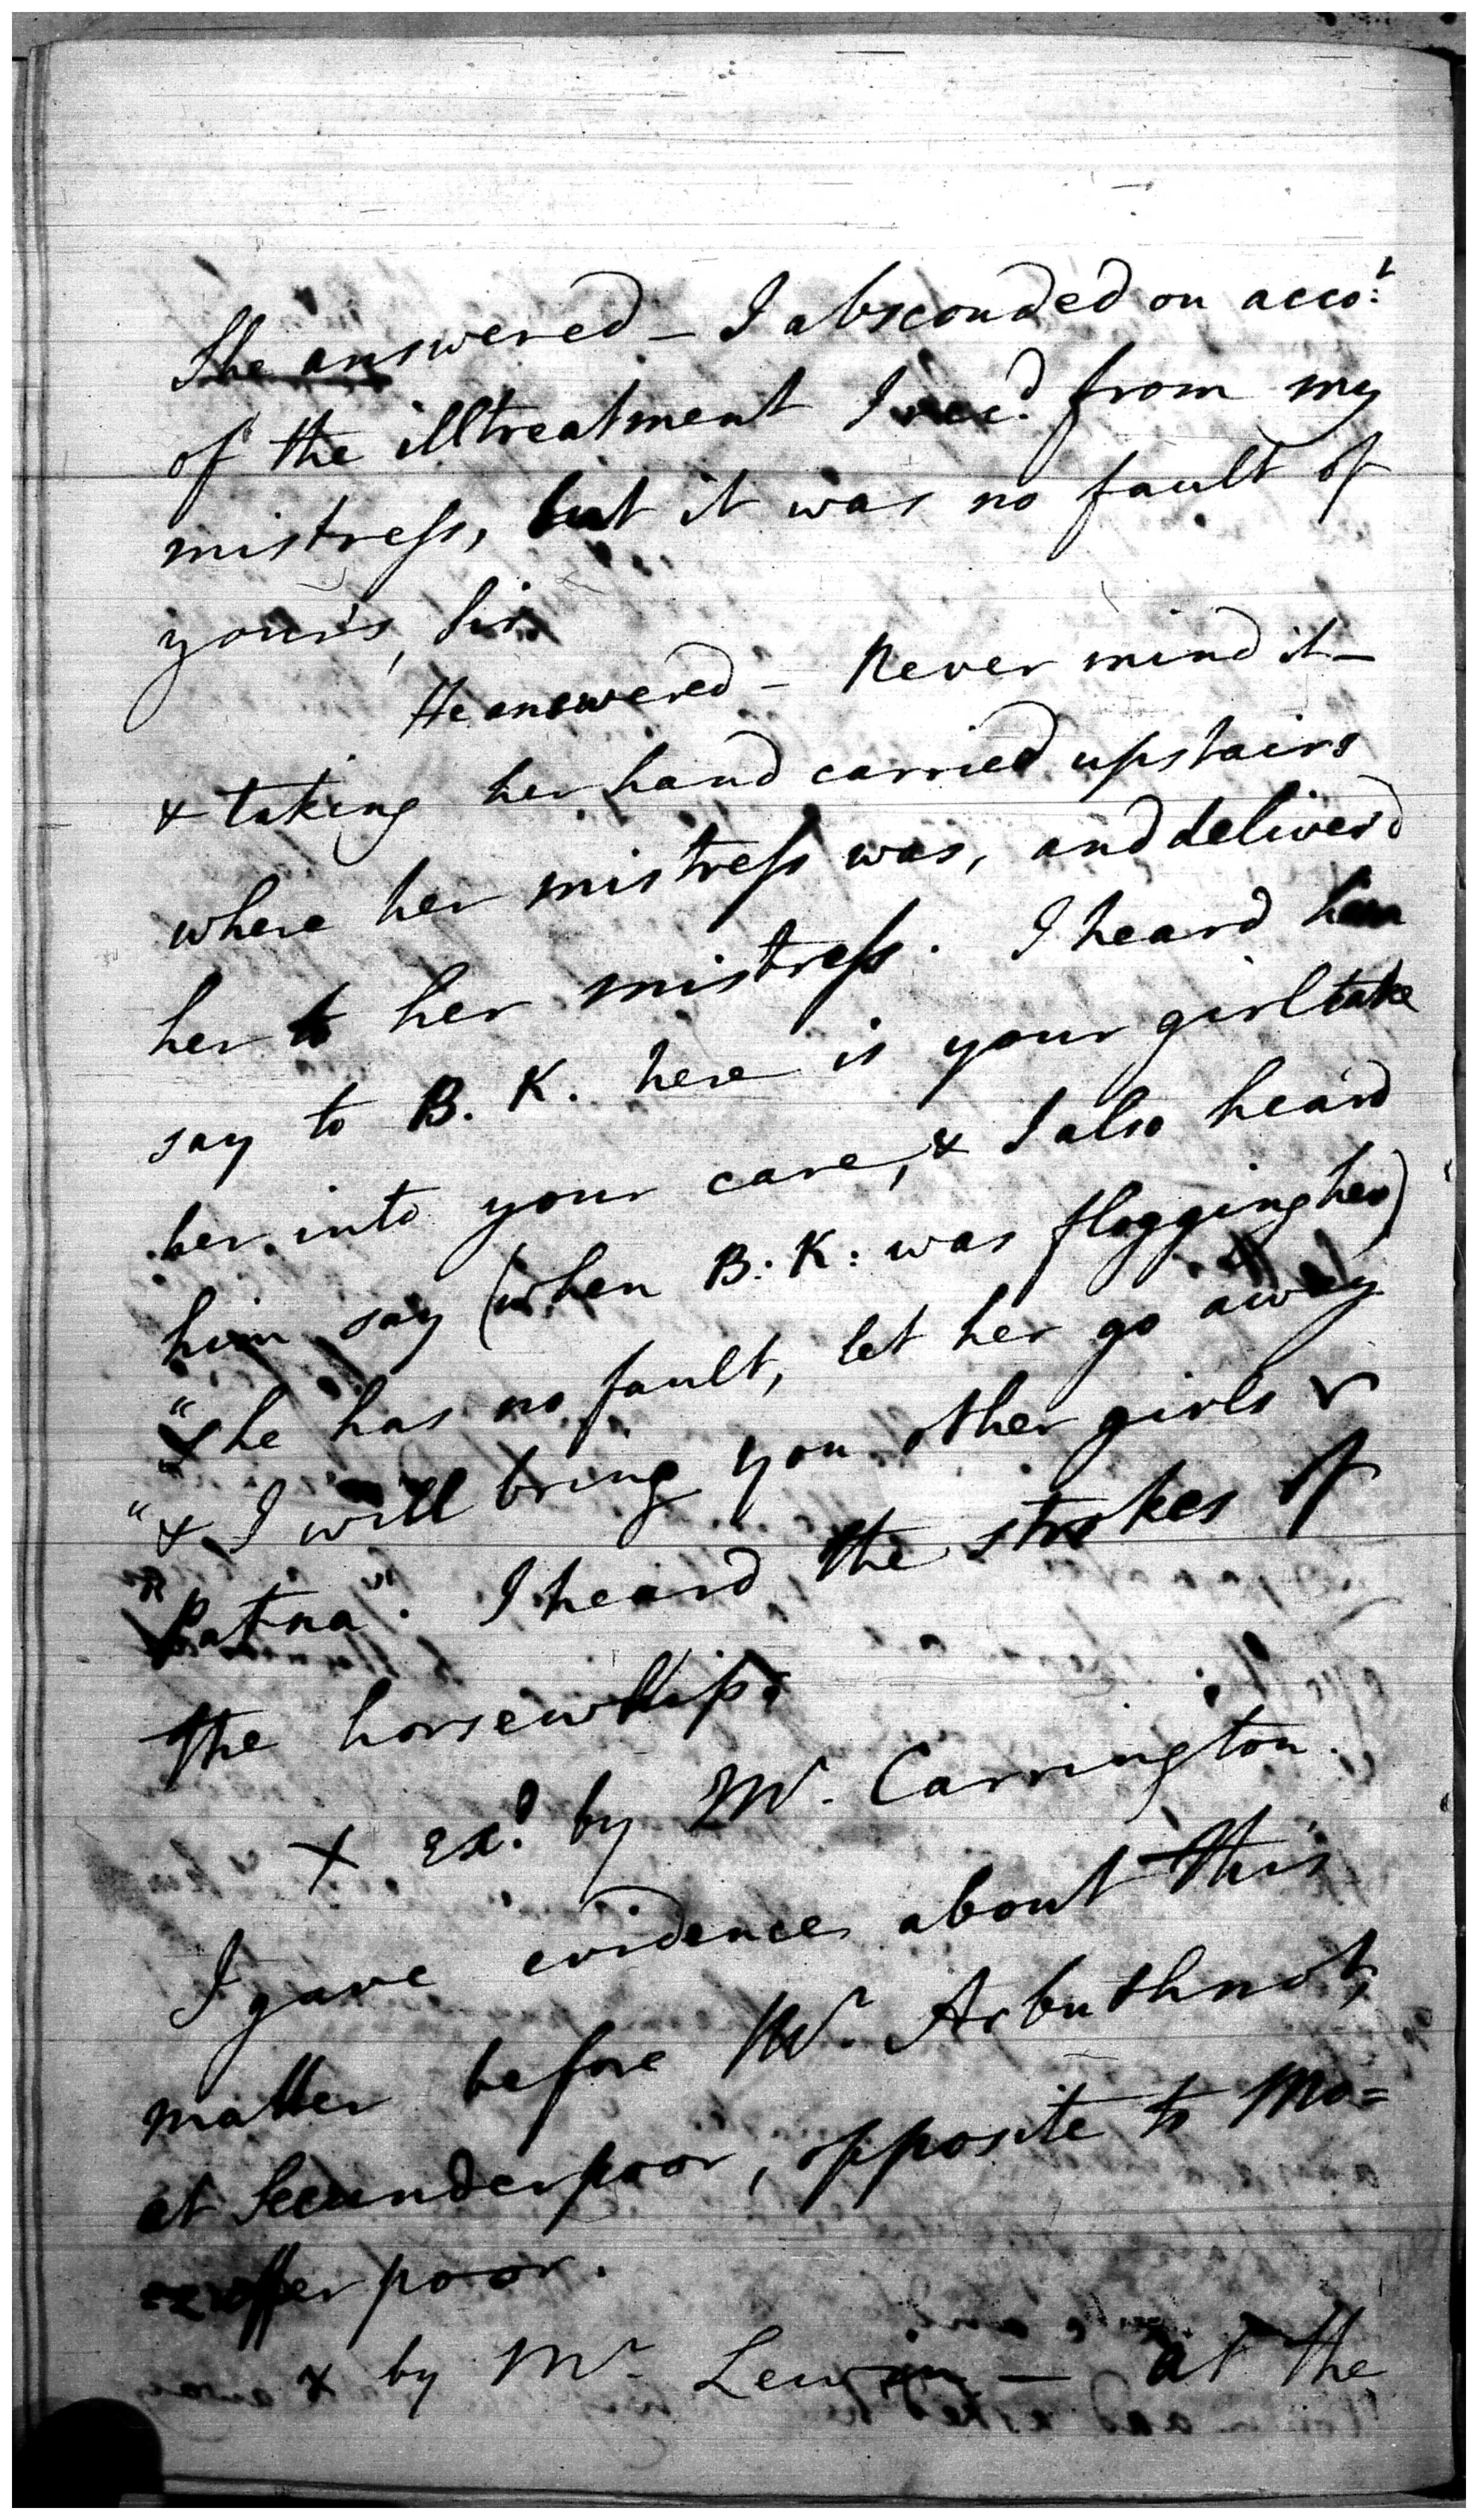 She answered – I absconded on acco:t
of the illtreatment I rec.d from my
mistress, but it was no fault of
your's, Sir.
He answered – Never mind it –
& taking her hand carried upstairs
where her mistress was, and deliver'd
her to her mistress. I heard him
say to B. K. here is your girl take
her into your care, & I also heard
him say (when B. K. was flogging her)
"She has no fault, let her go away
"& I will bring you other girls
"Patna". I heard the strokes of
the horsewhip.
X ex.d by Mr. Carrington.
I gave evidence about this
matter before Mr. Arbuthnot,
at Secunderpoor, opposite to Mo=
=zufferpoor.
X by Mr. Lewin — at the